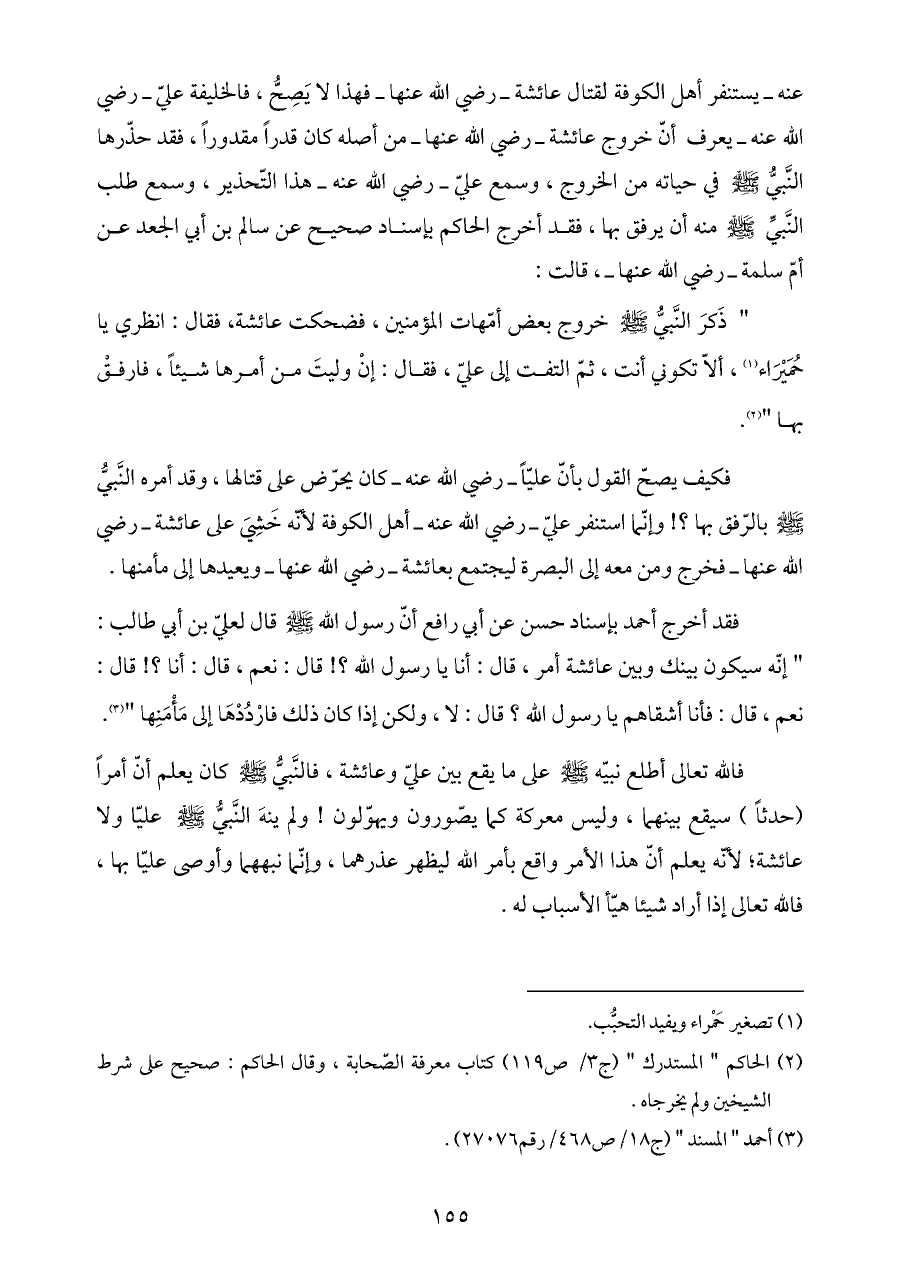 عنه ـ يستنفر أهل الكوفة لقتال عائشة ـ رضي الله عنها ـ فهذا لا يَصِحُّ ، فالخليفة عليّ ـ رضي
الله عنه ـ يعرف أنّ خروج عائشة ـ رضي الله عنها ـ من أصله كان قدراً مقدوراً ، فقد حذّرها
النَّبيُّ ﷺ في حياته من الخروج ، وسمع عليّ ـ رضي الله عنه ـ هذا التّحذير ، وسمع طلب
النَّبيِّ ﷺ منه أن يرفق بها ، فقد أخرج الحاكم بإسناد صحيح عن سالم بن أبي الجعد عن
أمّ سلمة ـ رضي الله عنها ـ ، قالت :
" ذَكَرَ النَّبيُّ ﷺ خروج بعض أمّهات المؤمنين ، فضحكت عائشة، فقال : انظري يا
حُمَيْرَاء(١) ، ألاّ تكوني أنت ، ثمّ التفت إلى عليّ ، فقال : إنْ وليتَ من أمرها شيئاً ، فارفقْ
بها "(٢).
فكيف يصحّ القول بأنّ عليّاً ـ رضي الله عنه ـ كان يحرّض على قتالها ، وقد أمره النَّبيُّ
ﷺ بالرّفق بها ؟! وإنّما استنفر عليّ ـ رضي الله عنه ـ أهل الكوفة لأنّه خَشِيَ على عائشة ـ رضي
الله عنها ـ فخرج ومن معه إلى البصرة ليجتمع بعائشة ـ رضي الله عنها ـ ويعيدها إلى مأمنها .
فقد أخرج أحمد بإسناد حسن عن أبي رافع أنّ رسول الله ﷺ قال لعليّ بن أبي طالب :
" إنّه سيكون بينك وبين عائشة أمر ، قال : أنا يا رسول الله ؟! قال : نعم ، قال : أنا ؟! قال :
نعم ، قال : فأنا أشقاهم يا رسول الله ؟ قال : لا ، ولكن إذا كان ذلك فارْدُدْهَا إلى مَأْمَنِها "(٣).
فالله تعالى أطلع نبيّه ﷺ على ما يقع بين عليّ وعائشة ، فالنَّبيُّ ﷺ كان يعلم أنّ أمراً
(حدثاً ) سيقع بينهما ، وليس معركة كما يصّورون ويهوّلون ! ولم ينهَ النَّبيُّ ﷺ عليّا ولا
عائشة؛ لأنّه يعلم أنّ هذا الأمر واقع بأمر الله ليظهر عذرهما ، وإنّما نبههما وأوصى عليّا بها ،
فالله تعالى إذا أراد شيئا هيّأ الأسباب له .
(١) تصغير حَمْراء ويفيد التحبُّب.
(٢) الحاكم " المستدرك " (ج٣/ ص١١٩) كتاب معرفة الصّحابة ، وقال الحاكم : صحيح على شرط
الشيخين ولم يخرجاه .
(٣) أحمد " المسند " (ج١٨/ ص٤٦٨/ رقم٢٧٠٧٦) .
١٥٥